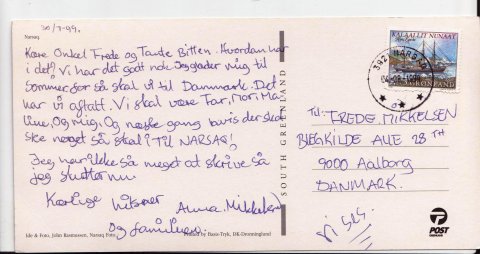 Narsaq
30/7-99.
Kære Onkel Frede og Tante Bitten. Hvordan har
i det? Vi har det godt nok. Jeg glæder mig til
sommer for så skal vi til Danmark. Det
har vi aftalt. Vi skal være Far, Mor, Ma
line, Og mig, Og næste gang der skal
ske noget så skal i TIL NARSAQ!
Jeg har ikke så meget at skrive så
jeg slutter nu
Kærlige hilsner
Anna. Mikkelsen
og familien.
Ide & Foto, John Rasmussen, Narsaq Foto
Printed by Bayis-Tryk, DK-Dronninglund
SOUTH GREENLAND
KALAALLIT NUNAAT
GRØNLAND
3921 NARSAQ
Til: FREDE. MIKKELSEN
BLEGKILDE ALLE 28 TH
9000 Aalborg
DANMARK.
Vi ses.
POST